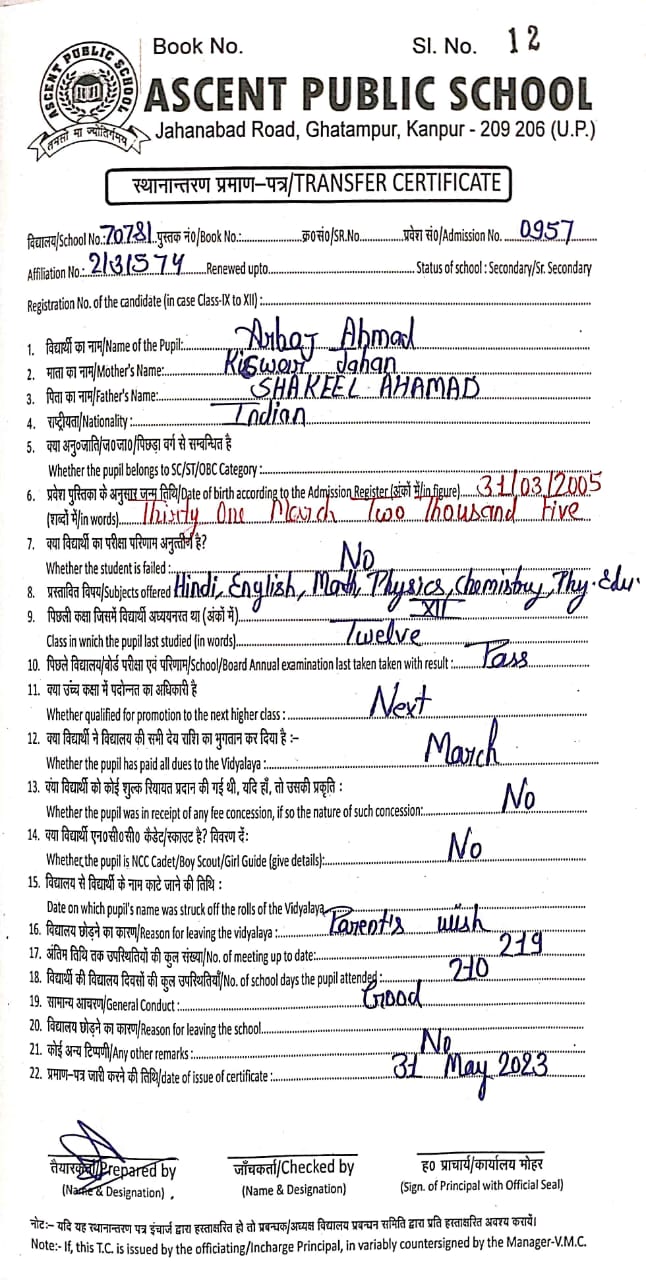 ASCENT PUBLIC SCHOOL
तमसो मा ज्योतिर्गमय
Book No. Sl. No. 12
ASCENT PUBLIC SCHOOL
Jahanabad Road, Ghatampur, Kanpur - 209 206 (U.P.)
स्थानान्तरण प्रमाण–पत्र/TRANSFER CERTIFICATE
विद्यालय/School No.: 70781 पुस्तक नं०/Book No.: क्र०सं०/SR.No. प्रवेश सं०/Admission No. 0957
Affiliation No.: 2131574 Renewed upto Status of school : Secondary/Sr. Secondary
Registration No. of the candidate (in case Class-IX to XII) :
1. विद्यार्थी का नाम/Name of the Pupil: Arbaj Ahmad
2. माता का नाम/Mother's Name: Kiswar Jahan
3. पिता का नाम/Father's Name: SHAKEEL AHAMAD
4. राष्ट्रीयता/Nationality : Indian
5. क्या अनु०जाति/ज०जा०/पिछड़ा वर्ग से सम्बन्धित है
Whether the pupil belongs to SC/ST/OBC Category :
6. प्रवेश पुस्तिका के अनुसार जन्म तिथि/Date of birth according to the Admission Register (अंकों में/in figure) 31/03/2005
(शब्दों में/in words) Thirty One March Two Thousand Five
7. क्या विद्यार्थी का परीक्षा परिणाम अनुत्तीर्ण है?
Whether the student is failed : No
8. प्रस्तावित विषय/Subjects offered Hindi, English, Math, Physics, Chemistry, Phy. Edu.
9. पिछली कक्षा जिसमें विद्यार्थी अध्ययनरत था (अंकों में) XII
Class in wnich the pupil last studied (in words) Twelve
10. पिछले विद्यालय/बोर्ड परीक्षा एवं परिणाम/School/Board Annual examination last taken taken with result : Pass
11. क्या उच्च कक्षा में पदोन्नत का अधिकारी है
Whether qualified for promotion to the next higher class : Next
12. क्या विद्यार्थी ने विद्यालय की सभी देय राशि का भुगतान कर दिया है :-
Whether the pupil has paid all dues to the Vidyalaya : March
13. क्या विद्यार्थी को कोई शुल्क रियायत प्रदान की गई थी, यदि हाँ, तो उसकी प्रकृति :
Whether the pupil was in receipt of any fee concession, if so the nature of such concession: No
14. क्या विद्यार्थी एन०सी०सी० कैडेट/स्काउट है? विवरण दें:
Whether, the pupil is NCC Cadet/Boy Scout/Girl Guide (give details): No
15. विद्यालय से विद्यार्थी के नाम काटे जाने की तिथि :
Date on which pupil's name was struck off the rolls of the Vidyalaya
16. विद्यालय छोड़ने का कारण/Reason for leaving the vidyalaya : Parent's wish
17. अंतिम तिथि तक उपस्थितियों की कुल संख्या/No. of meeting up to date: 219
18. विद्यार्थी की विद्यालय दिवसों की कुल उपस्थितियाँ/No. of school days the pupil attended : 210
19. सामान्य आचरण/General Conduct : Good
20. विद्यालय छोड़ने का कारण/Reason for leaving the school
21. कोई अन्य टिप्पणी/Any other remarks : No
22. प्रमाण–पत्र जारी करने की तिथि/date of issue of certificate : 31 May 2023
तैयारकर्ता/Prepared by जाँचकर्ता/Checked by ह० प्राचार्य/कार्यालय मोहर
(Name & Designation) (Name & Designation) (Sign. of Principal with Official Seal)
नोट:– यदि यह स्थानान्तरण पत्र इंचार्ज द्वारा हस्ताक्षरित हो तो प्रबन्धक/अध्यक्ष विद्यालय प्रबन्धन समिति द्वारा प्रति हस्ताक्षरित अवश्य करायें।
Note:- If, this T.C. is issued by the officiating/Incharge Principal, in variably countersigned by the Manager-V.M.C.